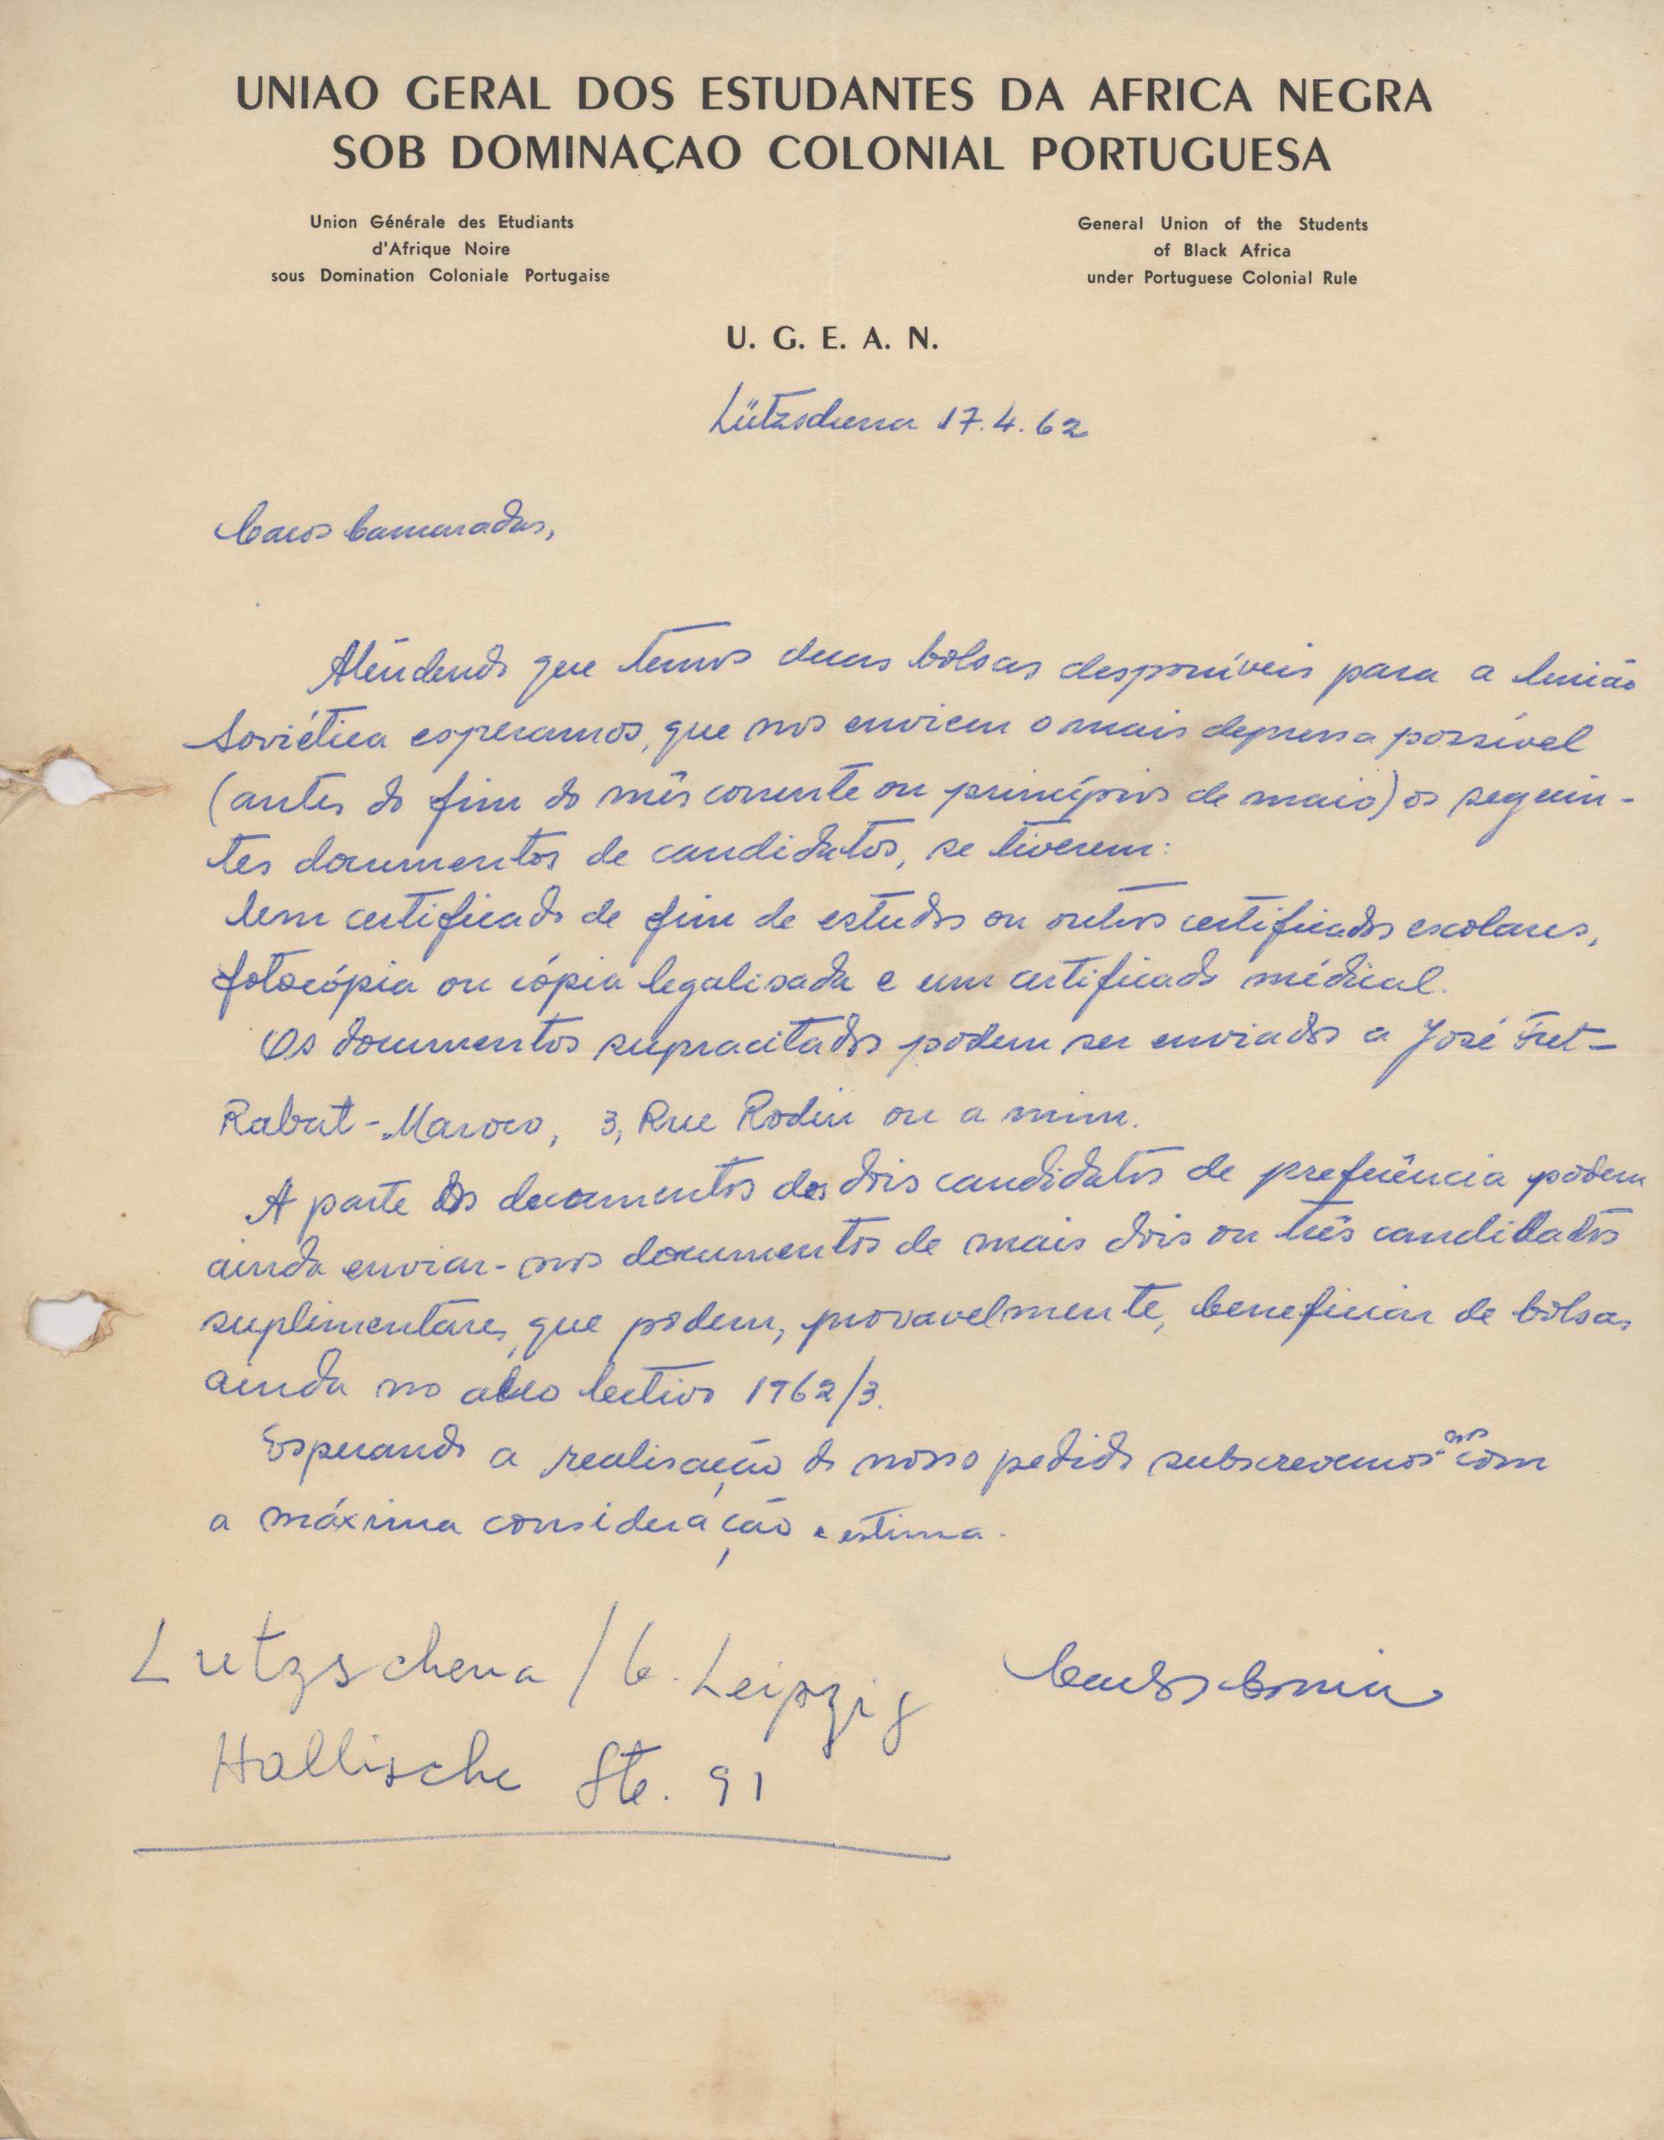 UNIAO GERAL DOS ESTUDANTES DA AFRICA NEGRA
SOB DOMINAÇAO COLONIAL PORTUGUESA
Union Générale des Etudiants
d'Afrique Noire
sous Domination Coloniale Portugaise
General Union of the Students
of Black Africa
under Portuguese Colonial Rule
U. G. E. A. N.
Lützschena 17.4.62
Caros Camaradas,
Atendendo que temos duas bolsas desponíveis para a União
Soviética esperamos, que nos enviem o mais depressa possível
(antes do fim do mês corrente ou princípios de maio) os seguin-
tes documentos de candidatos, se tiverem:
Um certificado de fim de estudos ou outros certificados escolares,
fotocópia ou cópia legalisada e um certificado médical.
Os documentos supracitados podem ser enviados a José Fret-
Rabat-Maroco, 3, Rue Rodin ou a mim.
A parte os documentos dos dois candidatos de preferência podem
ainda enviar-nos documentos de mais dois ou três candidatos
suplimentares, que podem, provavelmente, beneficiar de bolsas
ainda no ano lectivo 1962/3.
Esperando a realisação do nosso pedido subscrevemos-nos com
a máxima consideração e estima.
Lutzschena / b. Leipzig
Hallische Ste. 91